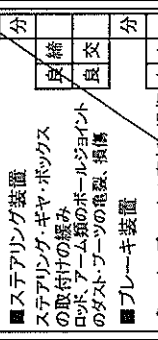 ■ステアリング装置 分
ステアリング・ギヤ・ボックス
の取付けの緩み 良 締
ロッド、アーム類のボールジョイント
のダスト・ブーツの亀裂、損傷 良 交
■ブレーキ装置 分